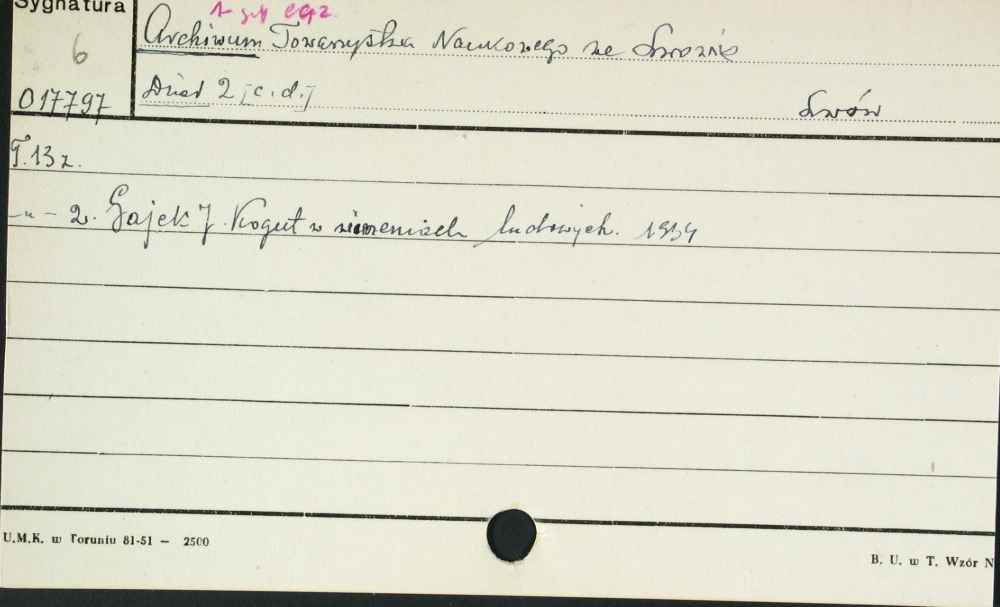 Sygnatura
1-szy egz.
6
Archiwum Towarzystwa Naukowego we Lwowie
017797
Dział 2 [c.d.]
Lwów
T. 13 z.
-"- 2. Gajek J. Kogut w wierzeniach ludowych. 1934
U.M.K. w Toruniu 81-51 — 2500
B. U. w T. Wzór N